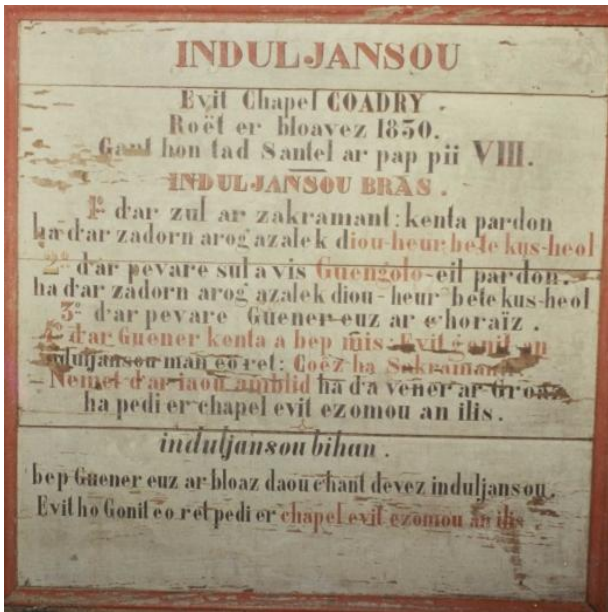 INDULJANSOU
Evit Chapel COADRY .
Roët er bloavez 1830.
Gant hon tad Santel ar pap pii VIII.
INDULJANSOU BRAS .
1º d'ar zul ar zakramant: kenta pardon
ha d'ar zadorn arog azalek diou-heur bete kus-heol
2º d'ar pevare sul a vis Guengolo-eil pardon.
ha d'ar zadorn arog azalek diou-heur bete kus-heol
3º d'ar pevare Guener euz ar c'horaïz .
4º d'ar Guener kenta a bep mis: Evit gonit an
induljansou man eo ret: Coëz ha
Nemet d'ar iaou amblid ha d'a vener ar
ha pedi er chapel evit ezomou an ilis.
induljansou bihan .
bep Guener euz ar bloaz daou c'hant devez induljansou.
Evit ho Gonit eo ret pedi er chapel evit ezomou an ilis